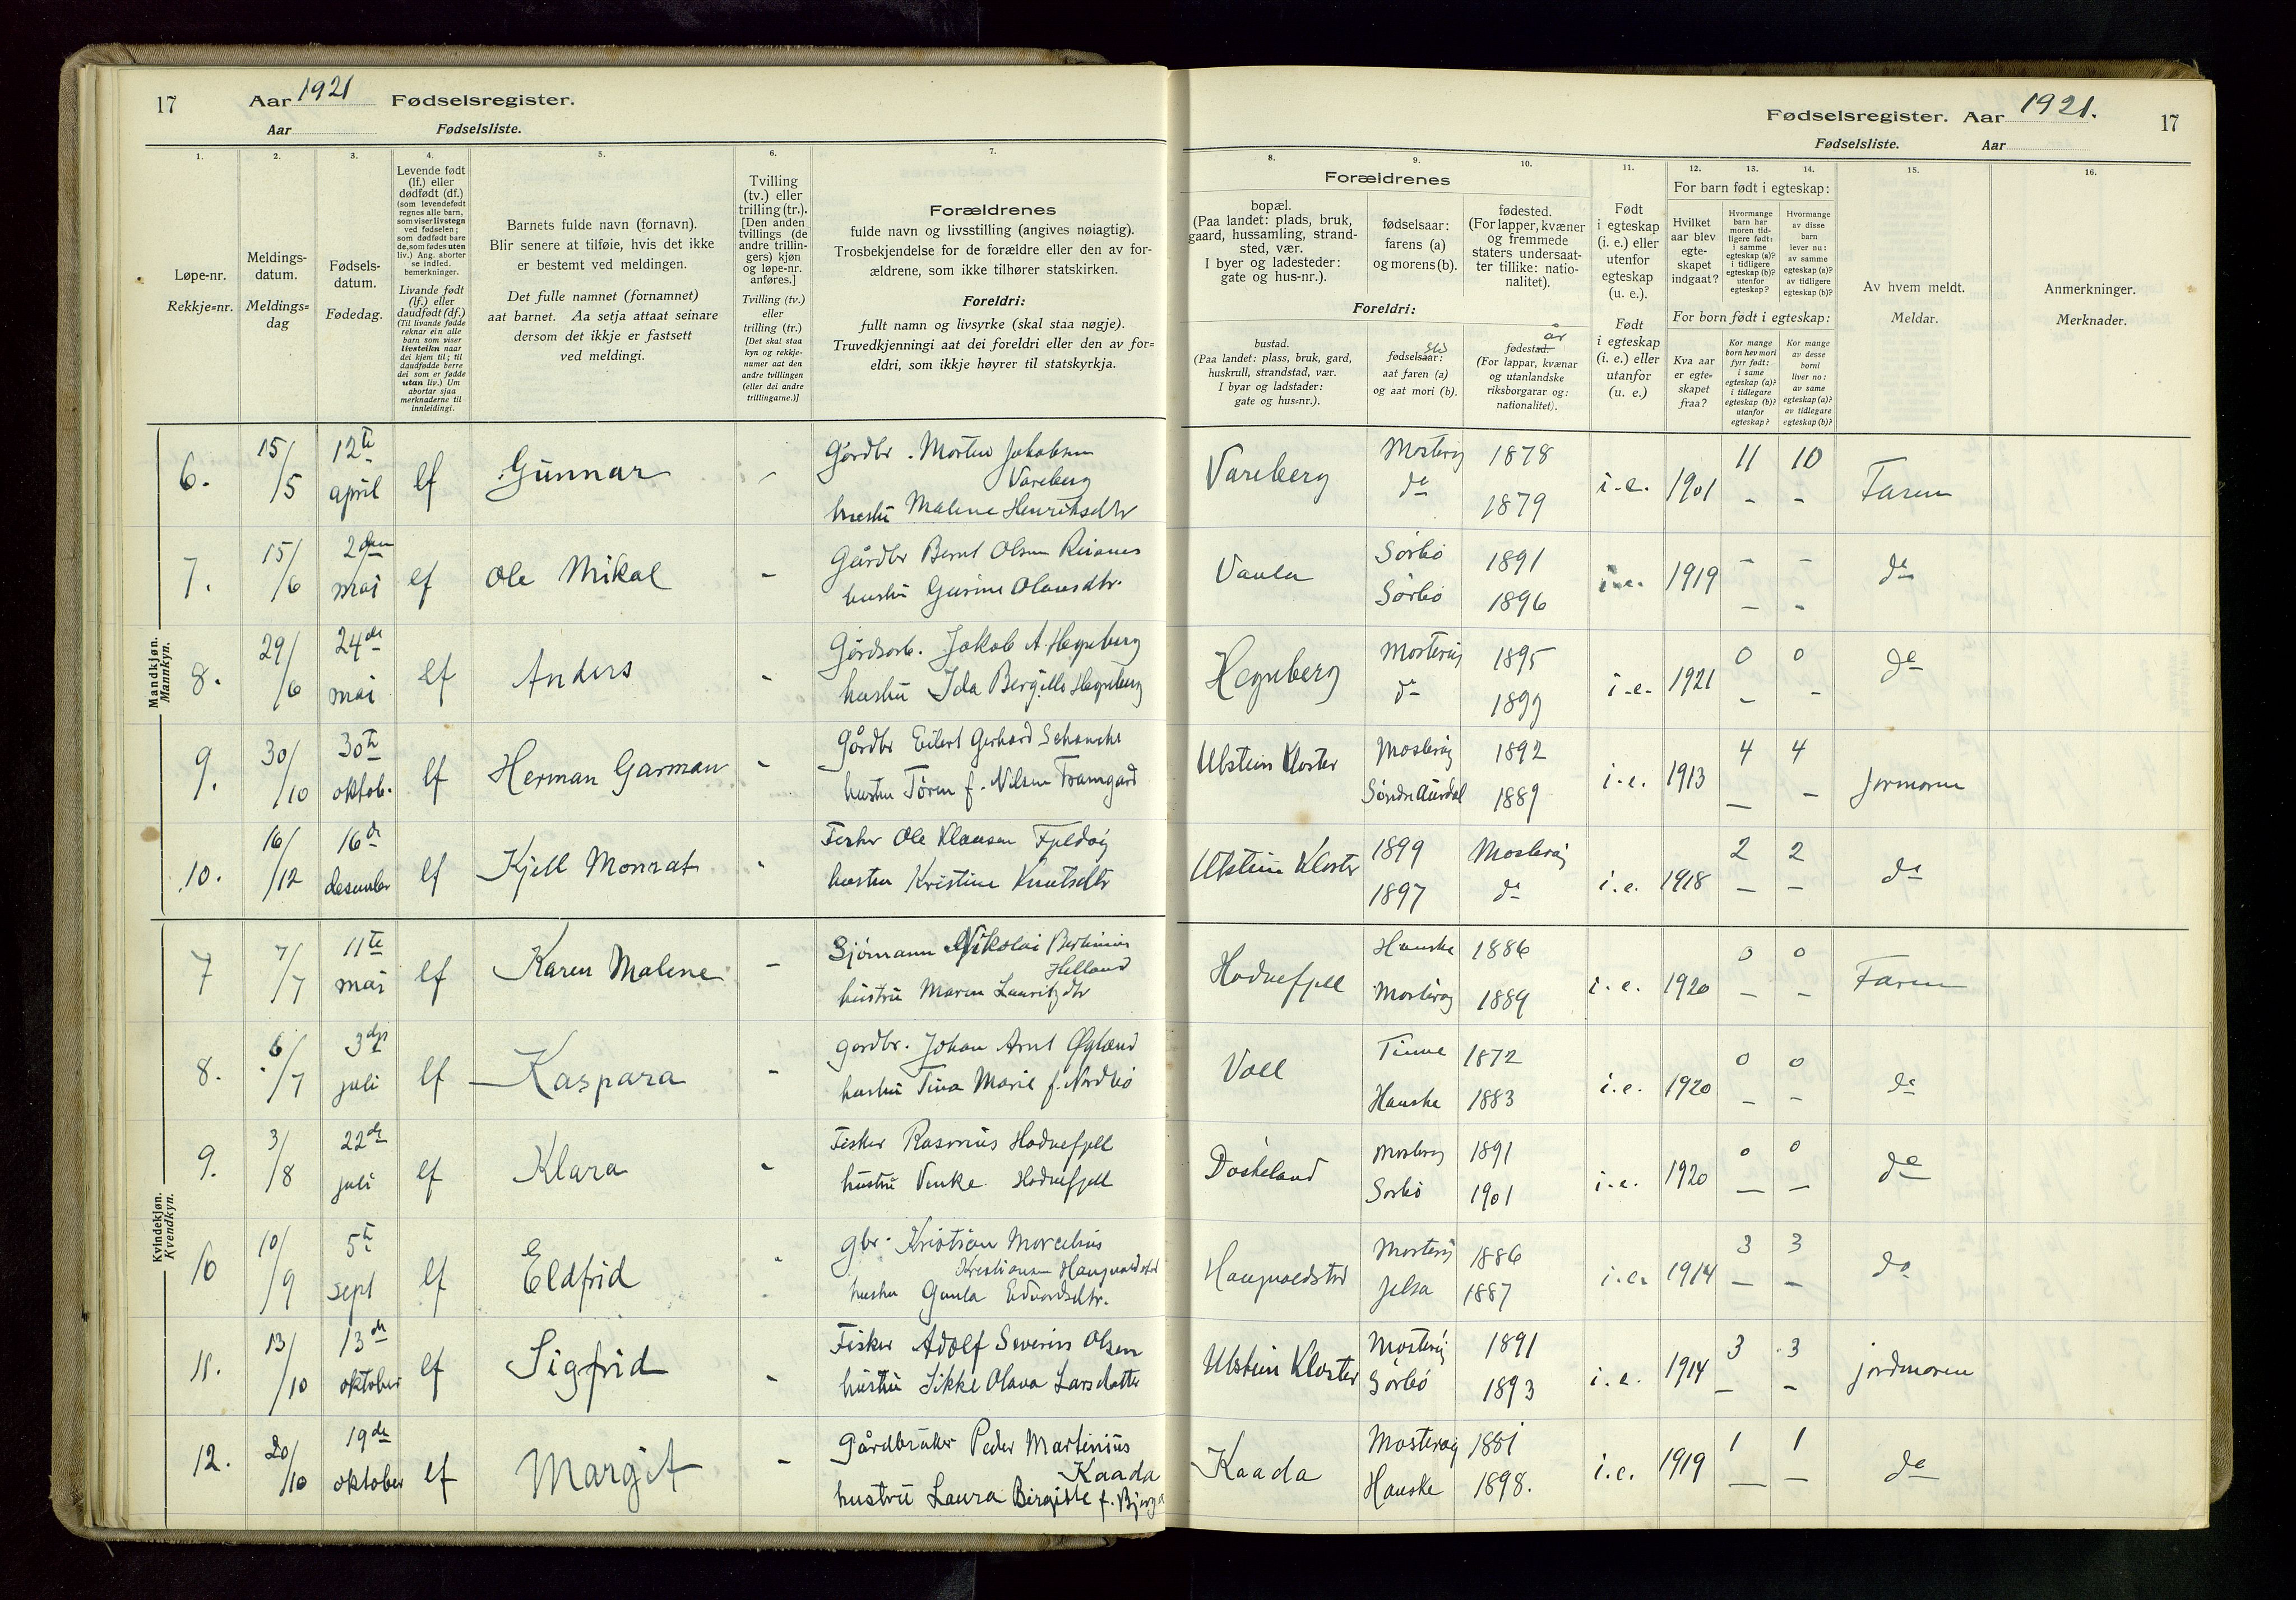 17 Aar 1921 Fødselsregister.
Aar Fødselsliste.
Fødselsregister. Aar 1921. 17
Fødselsliste. Aar
1. Løpe-nr. Rekkje=nr.
2. Meldings-datum. Meldings=dag
3. Fødsels-datum. Fødedag.
4. Levende født (lf.) eller dødfødt (df.) (som levendefødt regnes alle barn, som viser livstegn ved fødselen; som dødfødt bare de, som fødes uten liv.) Ang. aborter se indled. bemerkninger.
Livande født (lf.) eller daudfødt (df.) (Til livande fødde reknar ein alle barn som viser livsteikn naar dei kjem til; til daudfødde berre dei som er fødde utan liv.) Um abortar sjaa merknaderne til innleidingi.
5. Barnets fulde navn (fornavn). Blir senere at tilføie, hvis det ikke er bestemt ved meldingen.
Det fulle namnet (fornamnet) aat barnet. Aa setja attaat seinare dersom det ikkje er fastsett ved meldingi.
6. Tvilling (tv.) eller trilling (tr.). [Den anden tvillings (de andre trillingers) kjøn og løpe-nr. anføres.]
Tvilling (tv.) eller trilling (tr.) [Det skal staa kyn og rekkje-numer aat den andre tvillingen (eller dei andre trillingarne.)]
7. Forældrenes fulde navn og livsstilling (angives nøiagtig). Trosbekjendelse for de forældre eller den av forældrene, som ikke tilhører statskirken.
Foreldri: fullt namn og livsyrke (skal staa nøgje). Truvedkjenningi aat dei foreldri eller den av foreldri, som ikkje høyrer til statskyrkja.
Forældrenes
8. bopæl. (Paa landet: plads, bruk, gaard, hussamling, strandsted, vær. I byer og ladesteder: gate og hus-nr.).
9. fødselsaar: farens (a) og morens (b).
10. fødested. (For lapper, kvæner og fremmede staters undersaatter tillike: nationalitet).
Foreldri:
bustad. (Paa landet: plass, bruk, gard, huskrull, strandstad, vær. I byar og ladstader: gate og hus=nr.).
fødselsaar: aat faren (a) og aat mori (b).
år
fødestad. (For lappar, kvænar og utanlandske riksborgarar og: nationalitet).
11. Født i egteskap (i. e.) eller utenfor egteskap (u. e.).
Født i egteskap (i. e.) eller utanfor (u. e.)
For barn født i egteskap:
12. Hvilket aar blev egteskapet indgaat?
13. Hvormange barn har moren tidligere født: i samme egteskap (a)? i tidligere egteskap (b)? utenfor egteskap?
14. Hvormange av disse barn lever nu: av samme egteskap (a)? av tidligere egteskap (b)?
For born født i egteskap:
Kva aar er egteskapet fraa?
Kor mange born hev mori fyrr født: i same egteskap (a)? i tidlegare egteskap (b)? utanfor egteskap?
Kor mange av desse born liver no: av same egteskap (a)? av tidlegare egteskap (b)?
15. Av hvem meldt. Meldar.
16. Anmerkninger. Merknader.
Mandkjøn. Mannkyn.
6. 15/5 12te april lf Gunnar - Gårdbr. Morten Jakobsen Vareberg
hustru Malene Henriksdtr
Vareberg Mosterøy 1878 do 1879 i.e. 1901 11 10 - - Faren
7. 15/6 2den mai lf Ole Mikal - Gårdbr Bernt Olsen
hustru Gurine Olausdtr.
Vaula Sørbø 1891 Sørbø 1896 i.e. 1919 - - - - do
8. 29/6 24de mai lf Anders - Gårdsarb. Jakob A. Hegreberg
hustru Ida Hegreberg
Hegreberg Mosterøy 1895 do 1899 i.e. 1921 0 0 - - do
9. 30/10 30te oktob. lf Herman Garman - Gårdbr Eilert Gerhard Schanche
hustru Tøren f. Nilsen Framgard
Utstein Kloster Mosterøy 1892 Søndre Aurdal 1889 i.e. 1913 4 4 - - jormoren
10. 16/12 16de desember lf Kjell Monrat - Fisker Ole Klausen Fjeldøy
hustru Kristine Knutsdtr
Utstein Kloster 1899 Mosterøy 1897 do i.e. 1918 2 2 - - do
Kvindekjøn. Kvendkyn.
7 7/7 11te mai lf Karen Malene - Sjømann Nikolai Bertinius Helland
hustru Maren Lauritzdtr
Hodnefjell Hauske 1886 Mosterøy 1889 i.e. 1920 0 0 - - Faren
8. 6/7 3dje juli lf Kaspara - gardbr. Johan Arnt Øgland
hustru Tina Marie f. Nordbø
Voll Time 1872 Hauske 1883 i.e. 1920 0 0 - - do
9. 3/8 22de juli lf Klara - Fisker Rasmus Hodnefjell
hustru Venke Hodnefjell
Daskeland Mosterøy 1891 Sørbø 1901 i.e. 1920 0 0 - - do
10 10/9 5te sept lf Eldfrid - gbr. Kristian Marcelius Kristiansen Haugvaldstad
hustru Gunla Edvardsdtr.
Haugvaldstad Mosterøy 1886 Jelsa 1887 i.e. 1914 3 3 - - do
11. 13/10 13de oktober lf Sigfrid - Fisker Adolf Severin Olsen
hustru Sikke Olava Larsdatter
Utstein Kloster Mosterøy 1891 Sørbø 1893 i.e. 1914 3 3 - - jordmoren
12. 20/10 19de oktober lf Margit - Gårdbruker Peder Martinius Kaada
hustru Laura Birgitte f. Bjerga
Kaada Mosterøy 1881 Hauske 1898. i.e. 1919 1 1 - - do